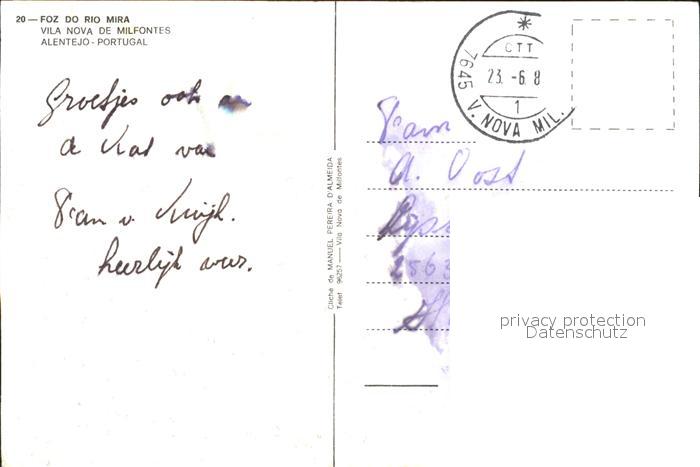 20 — FOZ DO RIO MIRA
VILA NOVA DE MILFONTES
ALENTEJO - PORTUGAL
Groetjes ook
de Kat van
Fam v.
heerlijk weer.
Cliche de MANUEL PEREIRA D'ALMEIDA
Telef. 96257 — Vila Nova de Milfontes
*
CTT
23. -6. 8
1
7645 V. NOVA MIL.
Fam
A. Oost
2563
privacy protection
Datenschutz